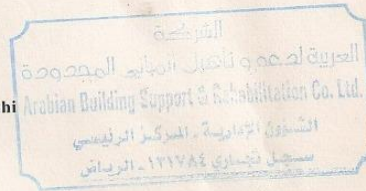 الشركة
العربية لدعم و تأهيل المباني المحدودة
hi Arabian Building Support & Rehabilitation Co. Ltd.
الشئون الإدارية - المركز الرئيسي
سجل تجاري ١٣١٧٨٤ - الرياض